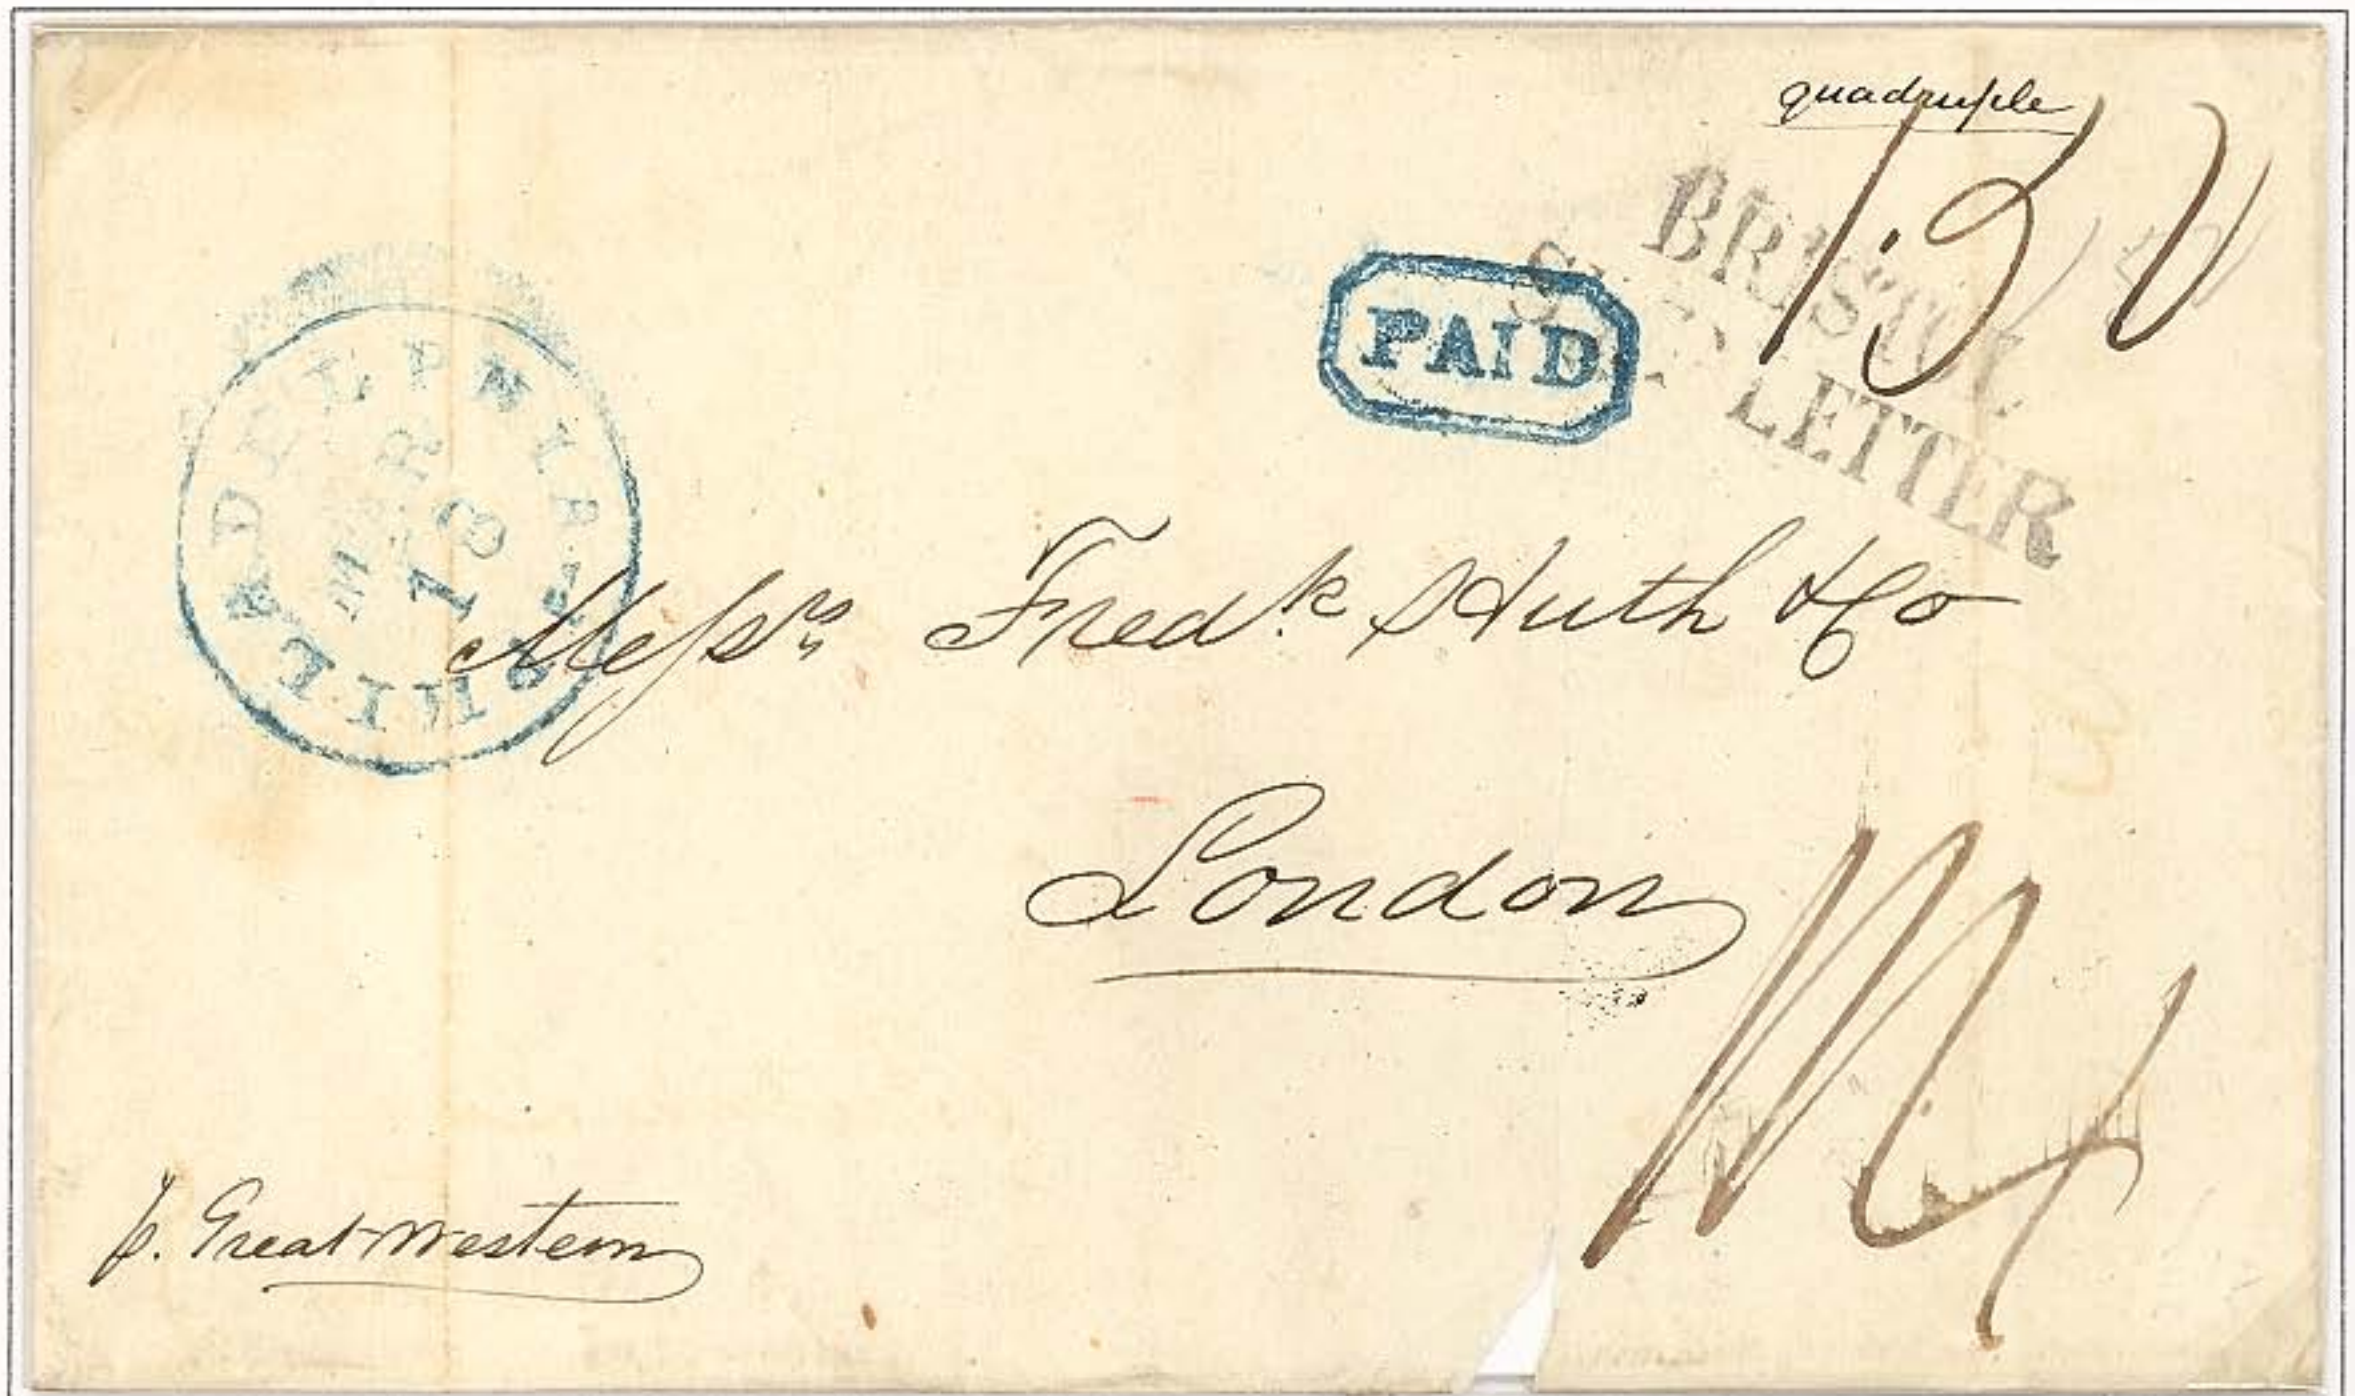 quadruple
1.50
BRISTOL
SHIP LETTER
PAID
PHILADELPHIA
MAR
18
Messrs Fredk Huth & Co
London
p. Great Western